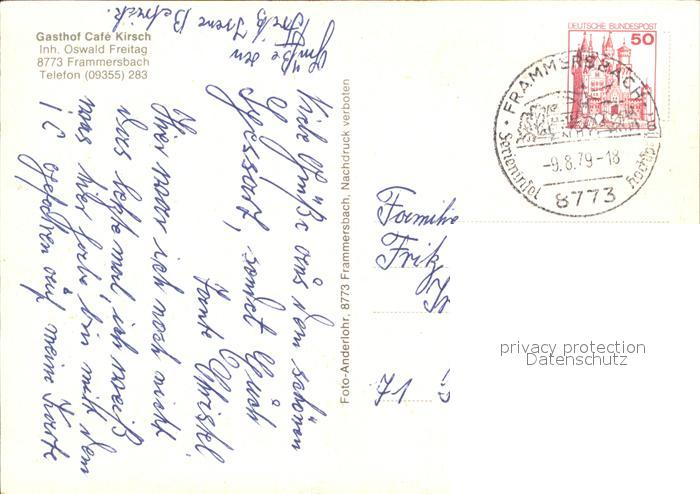 Gasthof Café Kirsch
Inh. Oswald Freitag
8773 Frammersbach
Telefon (09355) 283
Viele Grüße aus dem schönen
Spessart, sendet Euch
Tante Christel
Hier war ich noch nicht
das letzte mal, ich weiß
was hier habe bin mit dem
auf meine Karte
Grüße an
Irene
Foto-Anderlohr, 8773 Frammersbach, Nachdruck verboten
DEUTSCHE BUNDESPOST
50
FRAMMERSBACH
-9.8.79-18
8773
Familie
Fritz
71
privacy protection
Datenschutz